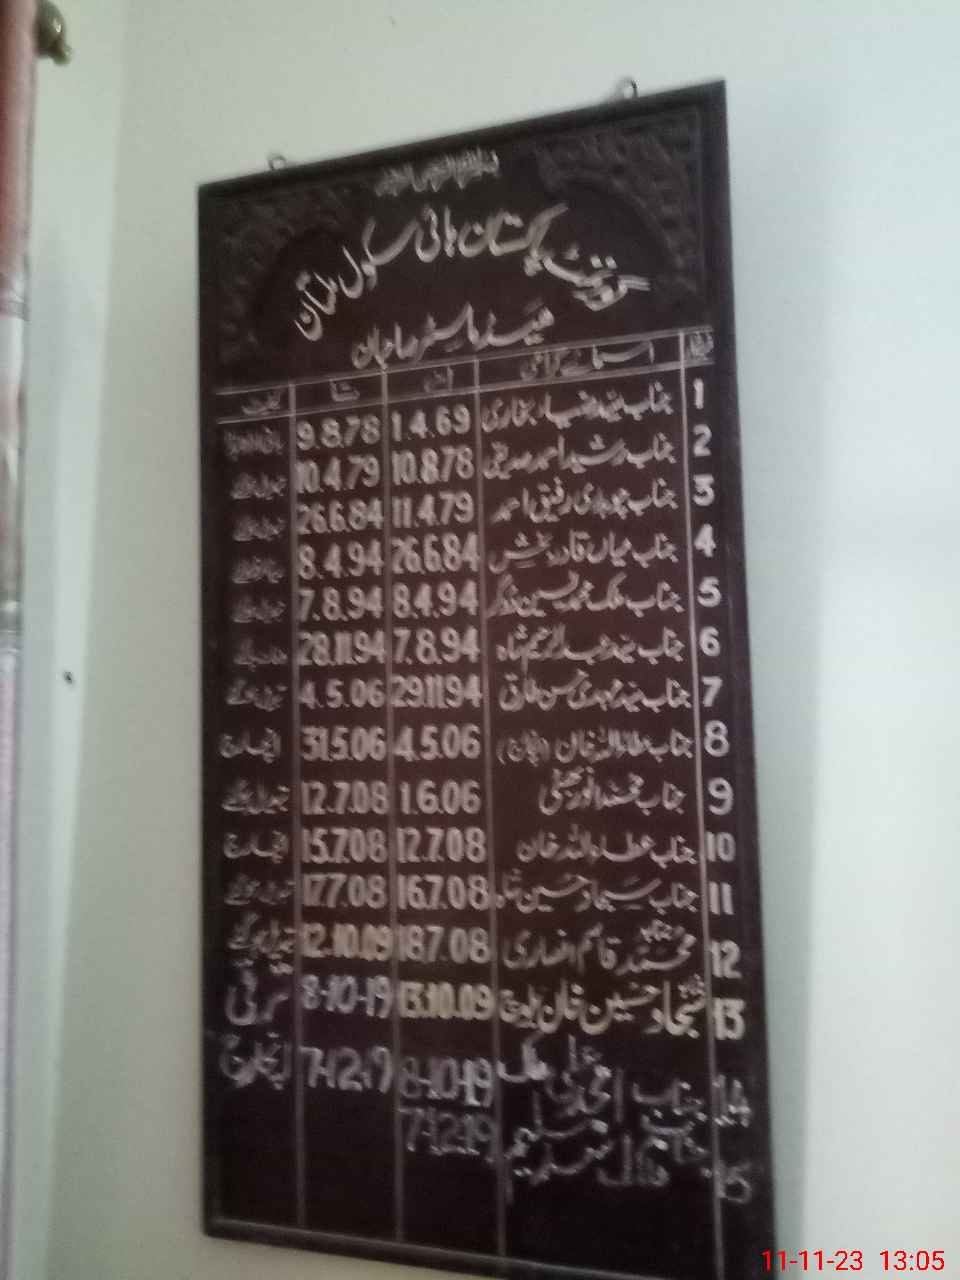 گورنمنٹ پاکستان ہائی سکول ملتان
ہیڈ ماسٹر صاحبان
اسمائے گرامی
1 جناب سید ضیاء بخاری 1.4.69 9.8.78
2 جناب رشید احمد صدیقی 10.8.78 10.4.79
3 جناب چوہدری رفیق احمد 11.4.79 26.6.84
4 جناب میاں قادر بخش 26.6.84 8.4.94
5 جناب ملک محمد حسین 8.4.94 7.8.94
6 جناب سید عبدالرحیم شاہ 7.8.94 28.11.94
7 جناب سید مہدی حسن طارق 29.11.94 4.5.06
8 جناب عطاء اللہ خان (انچارج) 4.5.06 31.5.06 انچارج
9 جناب محمد انور بھٹی 1.6.06 12.7.08
10 جناب عطاء اللہ خان 12.7.08 15.7.08 انچارج
11 جناب سجاد حسین شاہ 16.7.08 17.7.08
12 محمد قاسم انصاری 18.7.08 12.10.09
13 سجاد حسین خان بلوچ 13.10.09 8-10-19 ترقی
14 جناب ملک 8-10-19 7-12-19 انچارج
15 جناب 7-12-19
11-11-23 13:05